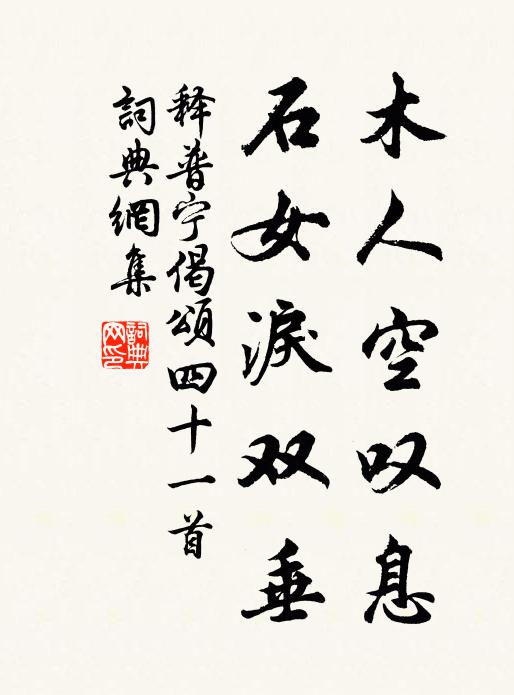 木人空叹息
石女淚双垂
释普宁偈頌四十一首
詞典網集
詞典网印